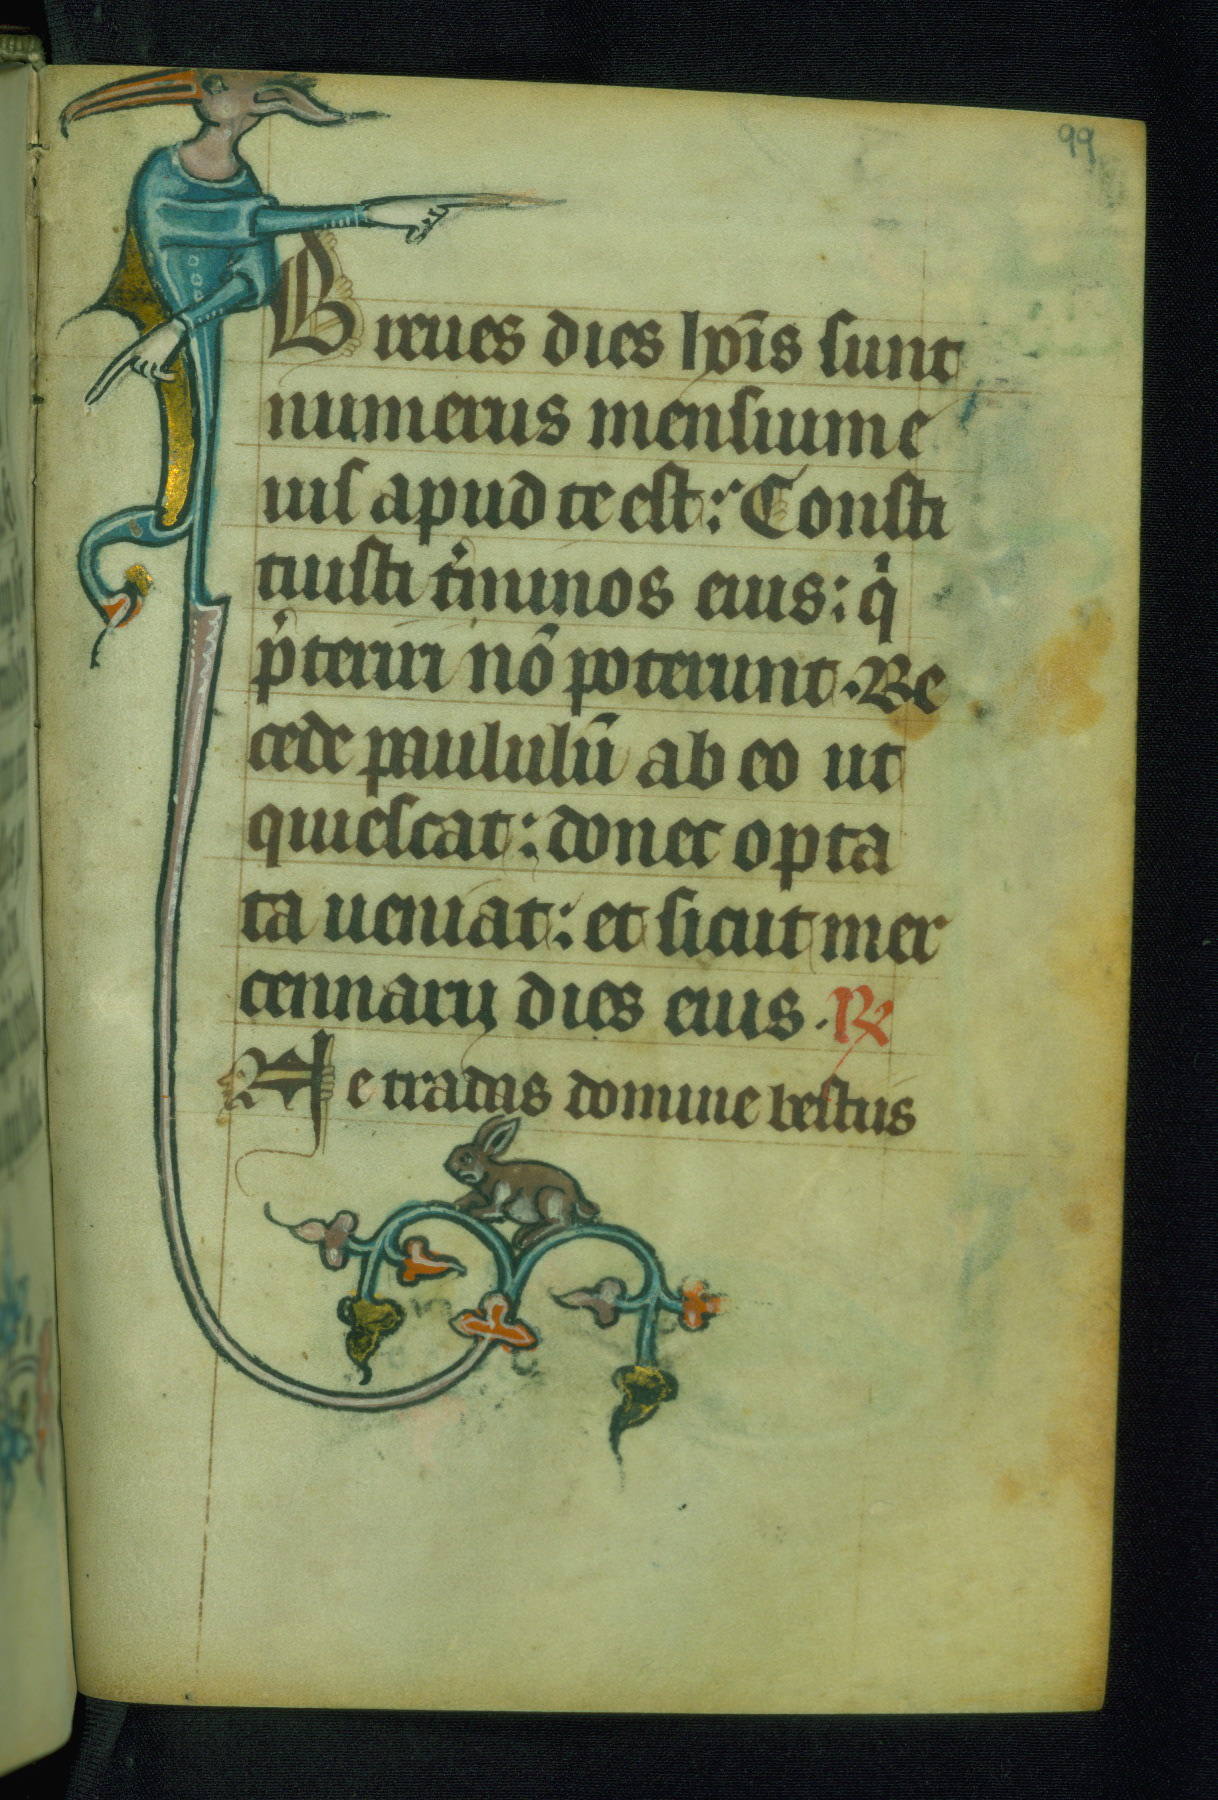 99
Breues dies hoi̅s sunt
numerus mensium e
uis apud te est: Consti
tuisti t'minos eius: q
p'teriri no̅ poterunt. Re
cede paululu̅ ab eo ut
quiescat: donec opta
ta ueniat: et sicut mer
cennarij dies eius. R
Ne tradas domine bestiis